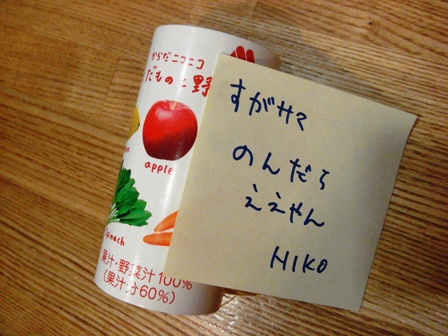 からだニコニコ
だものと野
apple
spinach
果汁・野菜汁100%
(果汁分60%)
すがサマ
のんだら
ええやん
HIKO